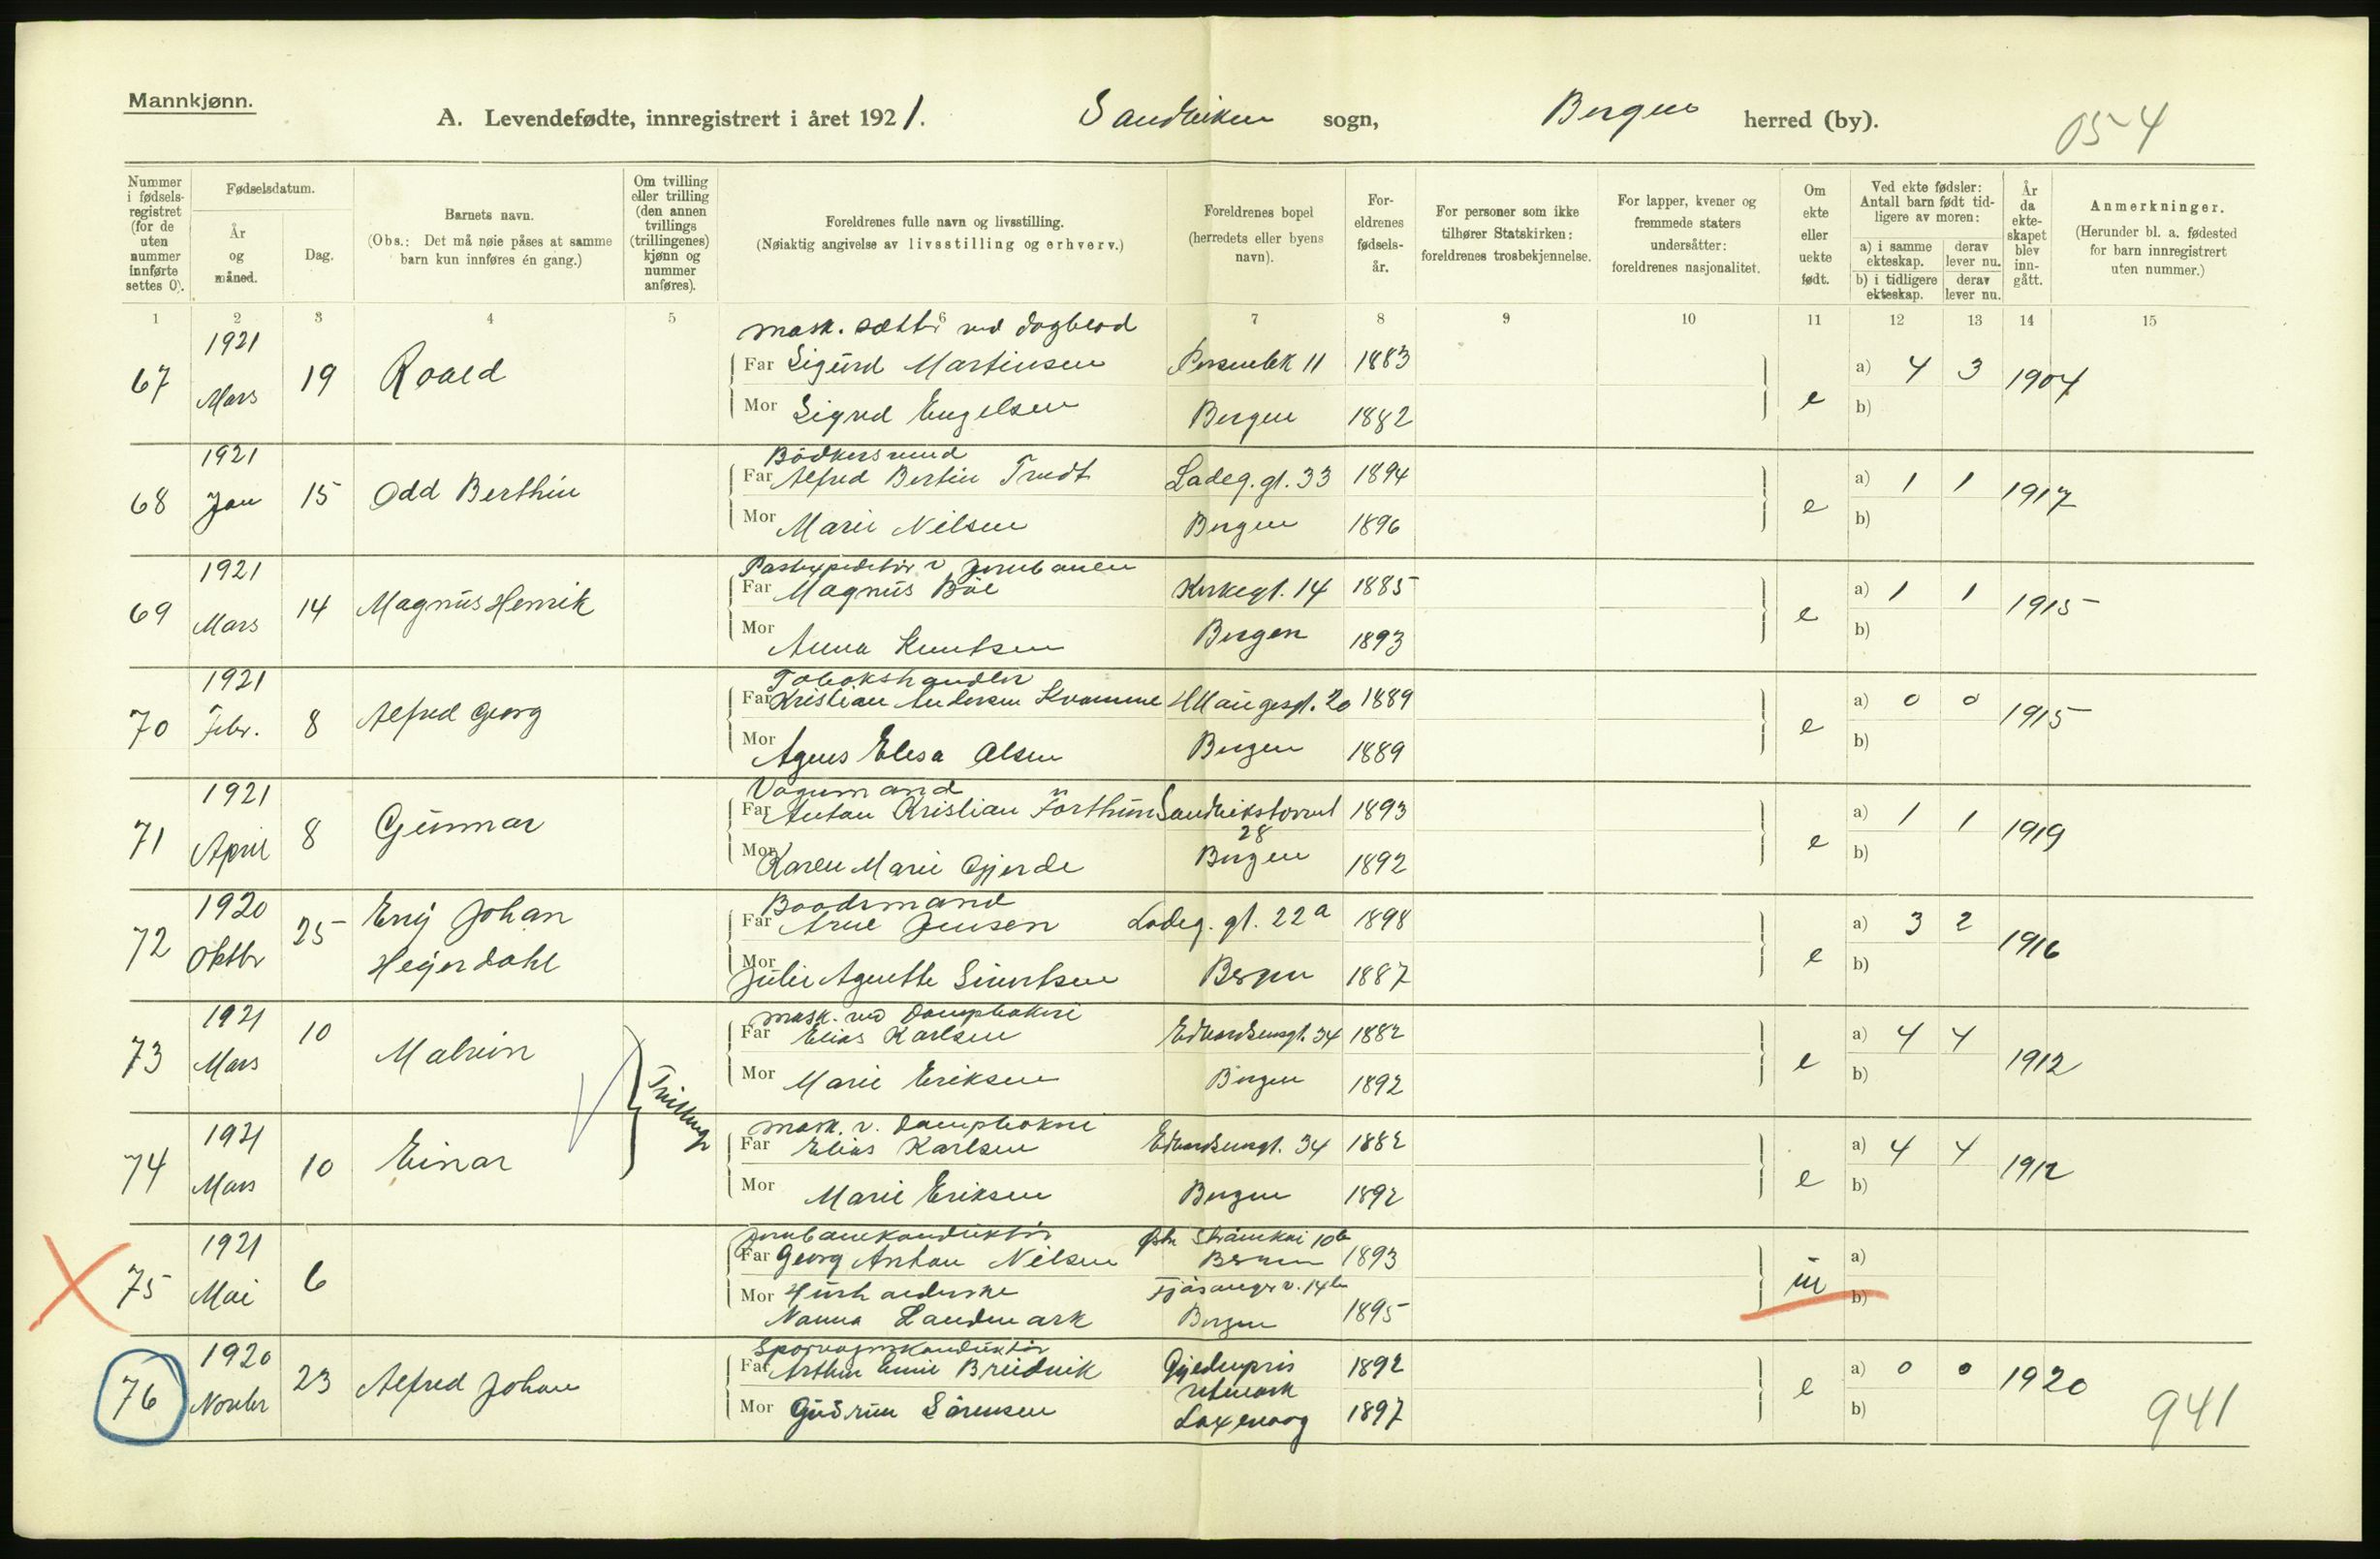 Mannkjønn.
A. Levendefødte, innregistrert i året 1921. Sandviken sogn, Bergen herred (by).
054
Nummer i fødsels-registret (for de uten nummer innførte settes 0).
Fødselsdatum.
År og måned.
Dag.
Barnets navn.
(Obs.: Det må nøie påses at samme barn kun innføres én gang.)
Om tvilling eller trilling (den annen tvillings (trillingenes) kjønn og nummer anføres).
Foreldrenes fulle navn og livsstilling.
(Nøiaktig angivelse av livsstilling og erhverv.)
Foreldrenes bopel (herredets eller byens navn).
For-eldrenes fødsels-år.
For personer som ikke tilhører Statskirken: foreldrenes trosbekjennelse.
For lapper, kvener og fremmede staters undersåtter: foreldrenes nasjonalitet.
Om ekte eller uekte født.
Ved ekte fødsler: Antall barn født tid-ligere av moren:
a) i samme ekteskap. derav lever nu.
b) i tidligere ekteskap. derav lever nu.
År da ekte-skapet blev inn-gått.
Anmerkninger.
(Herunder bl. a. fødested for barn innregistrert uten nummer.)
1 2 3 4 5 6 7 8 9 10 11 12 13 14 15
1921 mask. sætter ved dagblad
67 Mars 19 Roald Far Sigurd Martinsen 11 1883 e a) 4 3 1904
Mor Sigrid Engelsen Bergen 1882 b)
1921 Bödkersvend
68 Jan 15 Odd Berthin Far Alfred Bertin Tredt Ladeg. gt. 33 1894 e a) 1 1 1917
Mor Marie Nilsen Bergen 1896 b)
1921 Postexpeditör v Jernbanen
69 Mars 14 Magnus Henrik Far Magnus Böe Kirkegt. 14 1885 e a) 1 1 1915
Mor Anna Knutsen Bergen 1893 b)
1921 Tobakshandler
70 Febr. 8 Alfred Georg Far Kristian Andersen Kvamme H Haugesgt. 20 1889 e a) 0 0 1915
Mor Agnes Elesa Olsen Bergen 1889 b)
1921 Vognmand
71 April 8 Gunnar Far Anton Kristian Forthun Sandvikstorvet 28 1893 e a) 1 1 1919
Mor Karen Marie Gjerde Bergen 1892 b)
1920 Baadsmand
72 Oktbr 25 Erig Johan Heyerdahl Far Arne Jensen Ladeg. gt. 22a 1898 e a) 3 2 1916
Mor Julie Agnethe Sivertsen Bergen 1887 b)
1921 mask. ved Dampbakeri
73 Mars 10 Malvin Far Elias Karlsen Edvardsensgt. 34 1882 e a) 4 4 1912
Mor Marie Eriksen Bergen 1892 b)
Tvillinger
1921 mask. v. Dampbakeri
74 Mars 10 Einar Far Elias Karlsen Edvardsensgt. 34 1882 e a) 4 4 1912
Mor Marie Eriksen Bergen 1892 b)
1921 Jernbanekonduktör Østre Strømkai 10b
75 Mai 6 Far Georg Anton Nilsen Bergen 1893 u a)
Mor Husholderske Fjösangerv. 14b
Nanna Landmark Bergen 1895 b)
1920 Sporvognskonduktör
76 Novbr 23 Alfred Johan Far Arthur Emil Breidvik Gjeldenpris 1892 e a) 0 0 1920
Mor Gudrun Sörensen Laxevaag 1897 b)
941